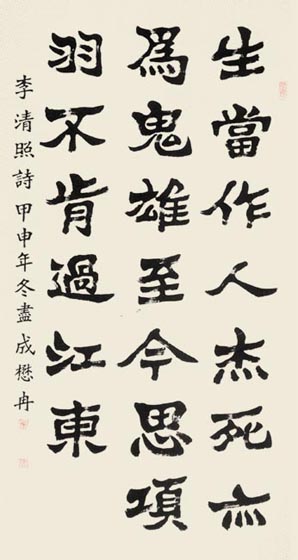 生當作人杰死亦
爲鬼雄至今思項
羽不肯過江東
李清照詩甲申年冬盡成懋冉